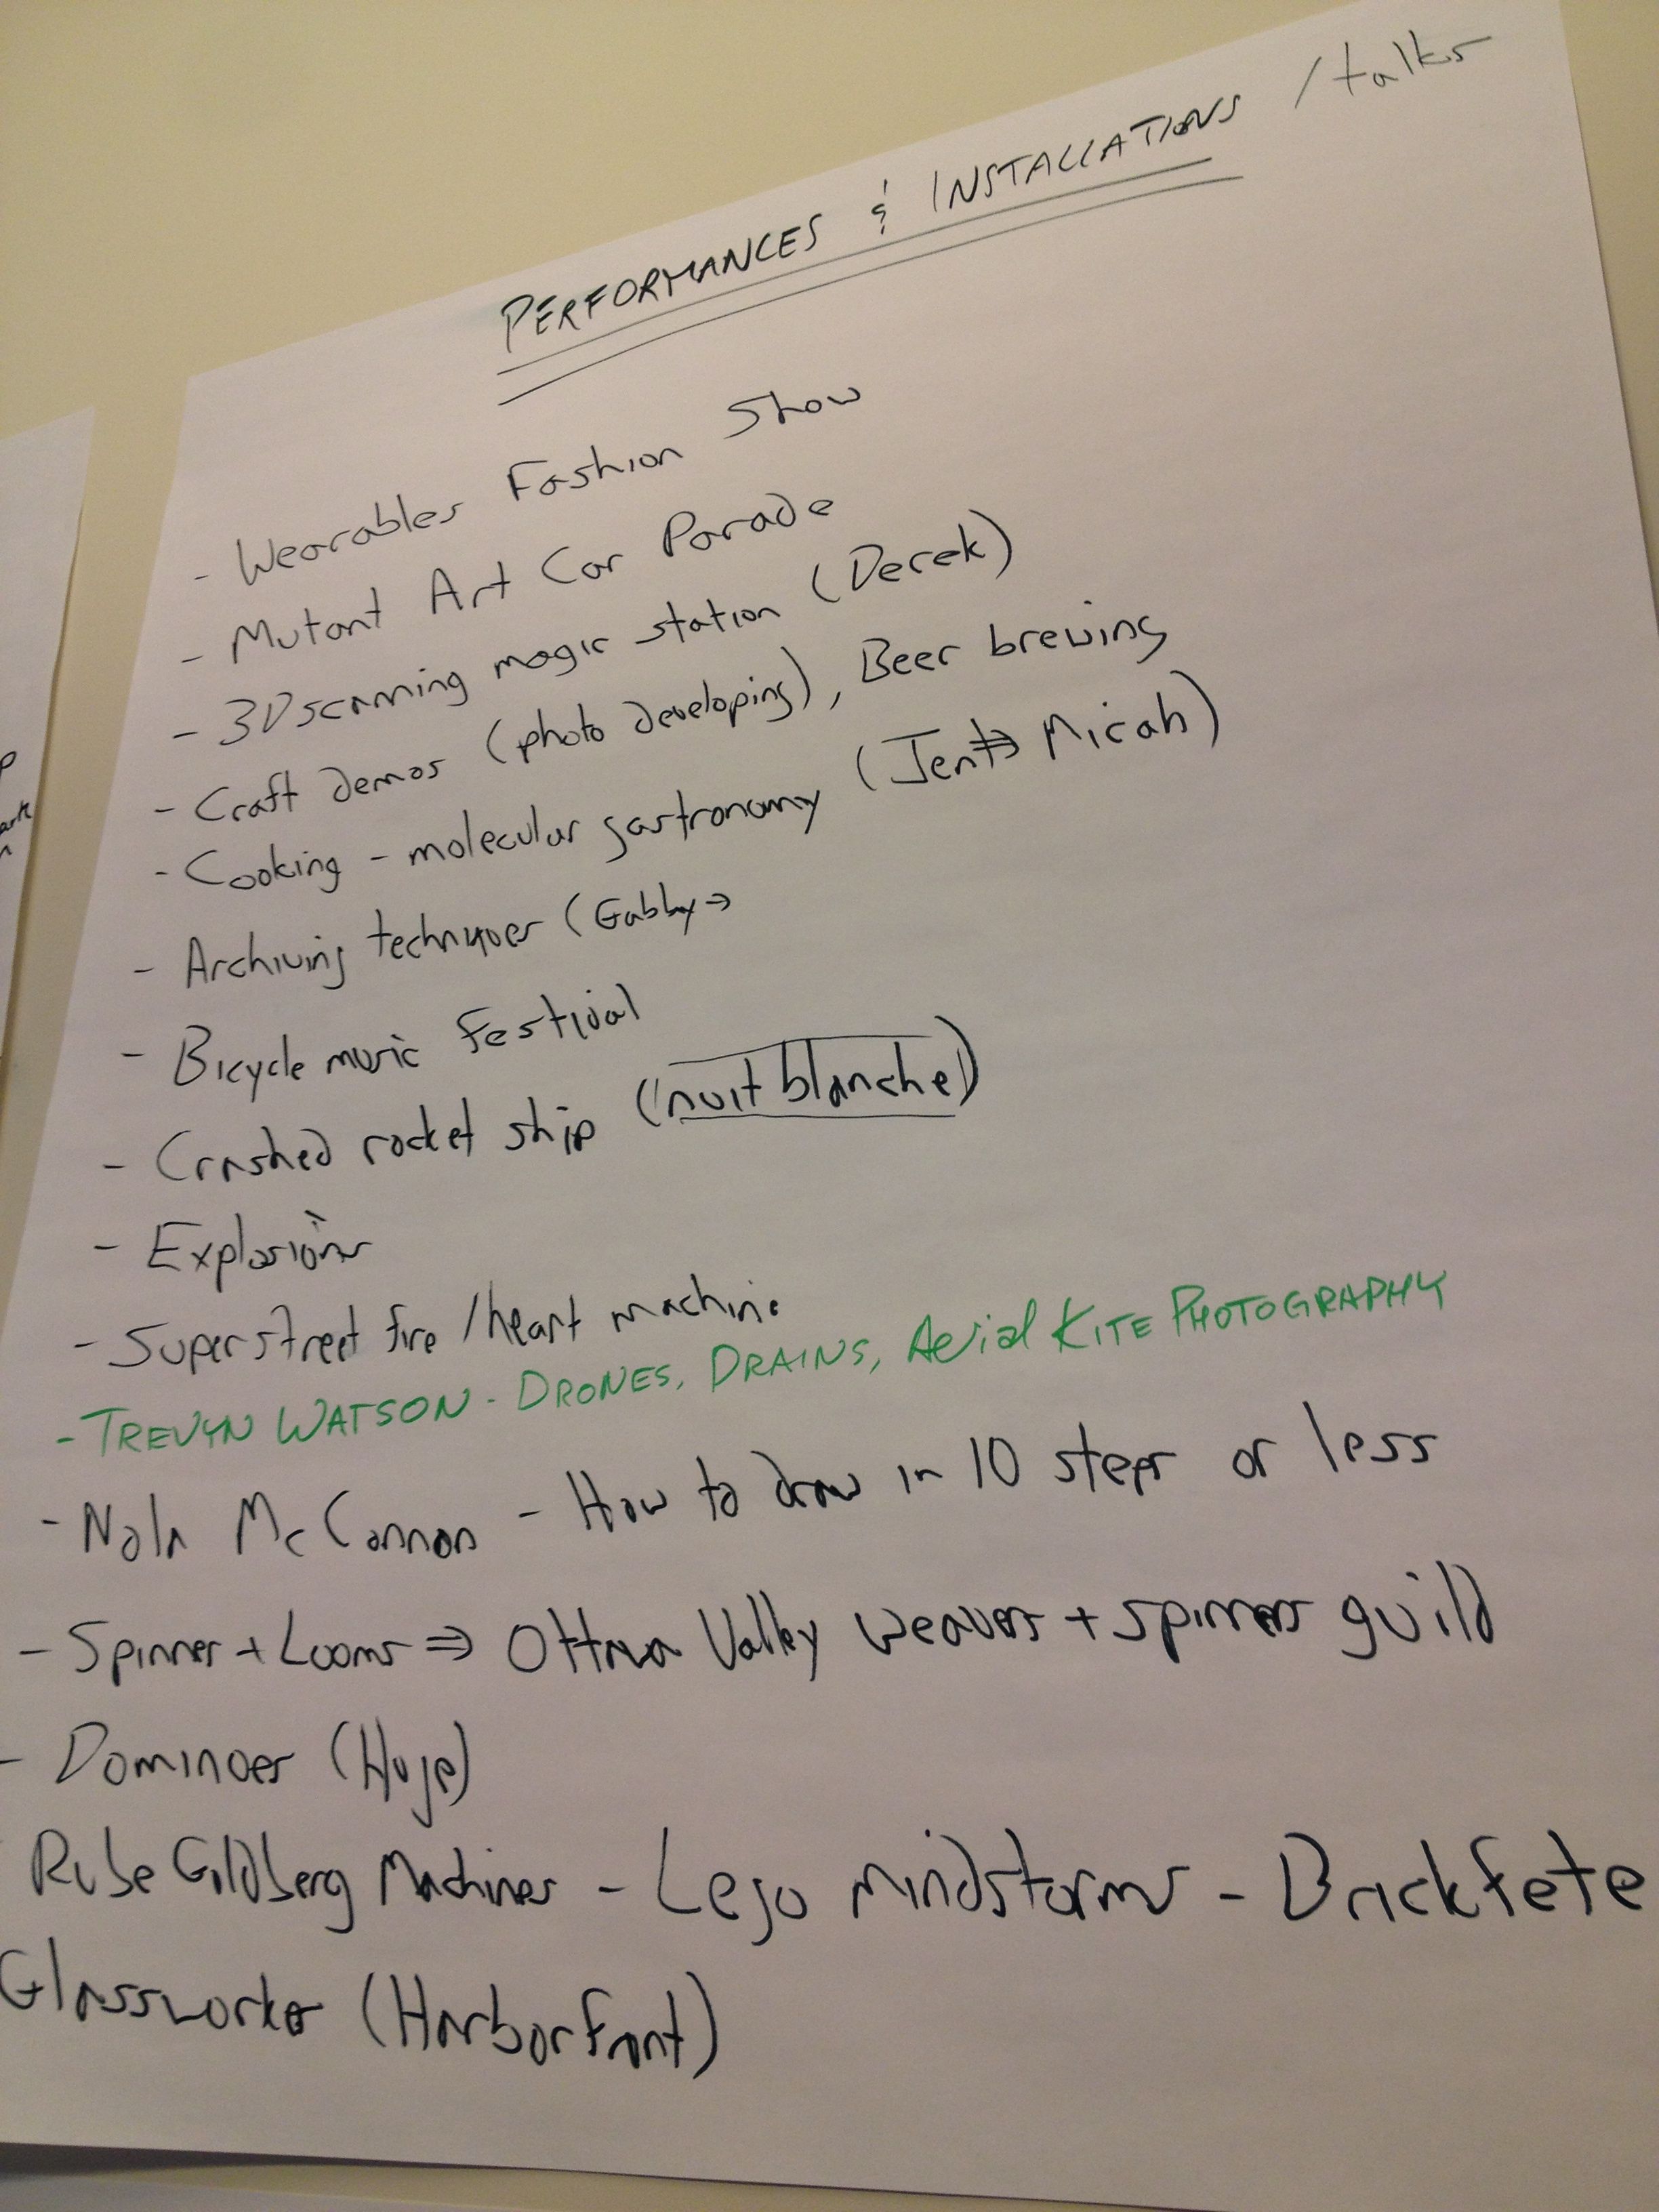 PERFORMANCES & INSTALLATIONS / talks
- Wearables Fashion Show
- Mutant Art Car Parade
- 3D scanning magic station (Derek)
- Craft demos (photo developing), Beer brewing
- Cooking - molecular gastronomy (Jen ⇒ Micah)
- Archiving techniques (Gabby →
- Bicycle music festival
- Crashed rocket ship (nuit blanche)
- Explosions
- Super street fire / heart machine
- TREVYN WATSON - DRONES, DRAINS, Aerial KITE PHOTOGRAPHY
- Nola McConnon - How to draw in 10 steps or less
- Spinner + Looms ⇒ Ottawa Valley weavers + spinners guild
- Dominoes (Huge)
Rube Goldberg Machines - Lego mindstorms - Brickfete
Glassworks (Harborfront)